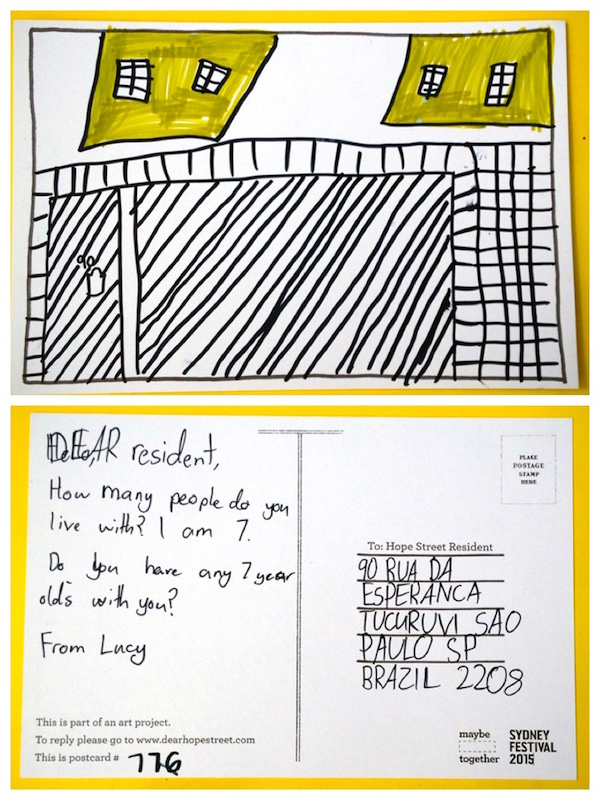 90
DEAR resident,
How many people do you
live with? I am 7.
Do you have any 7 year
olds with you?
From Lucy
This is part of an art project.
To reply please go to www.dearhopestreet.com
This is postcard # 776
PLACE
POSTAGE
STAMP
HERE
To: Hope Street Resident
90 RUA DA
ESPERANCA
TUCURUVI SAO
PAULO SP
BRAZIL 2208
maybe
together
SYDNEY
FESTIVAL
2015